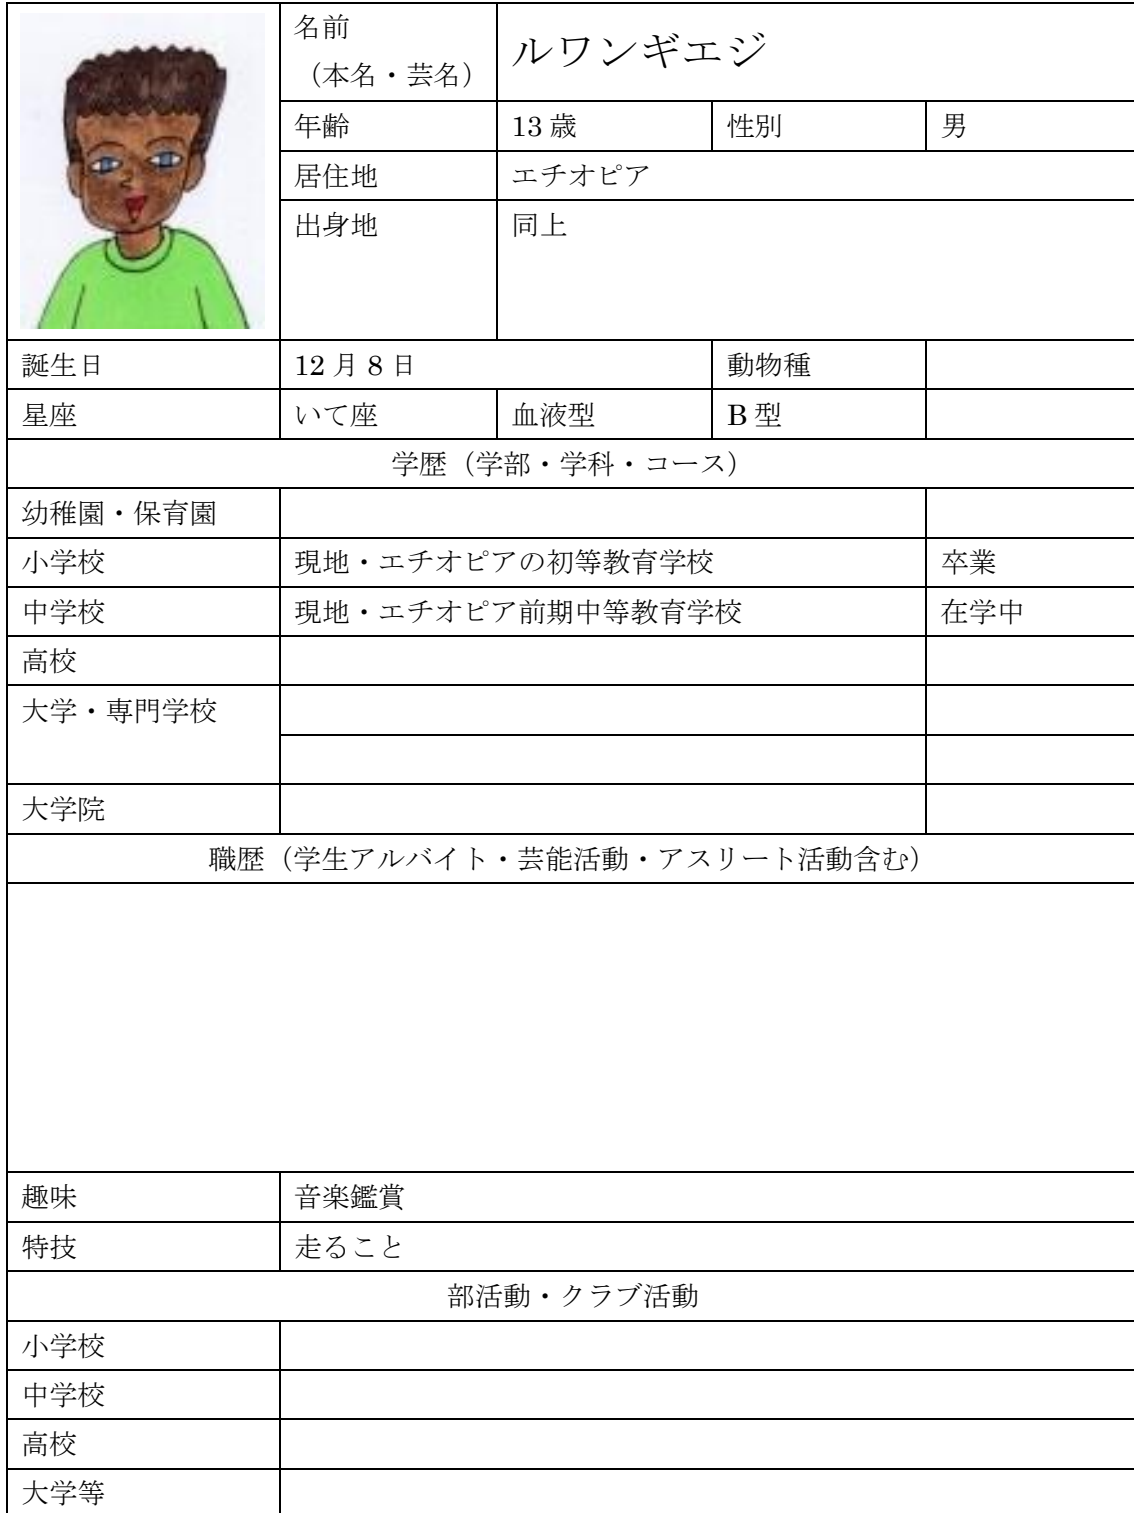 名前
（本名・芸名）
ルワンギエジ
年齢 13歳 性別 男
居住地 エチオピア
出身地 同上
誕生日 12月8日 動物種
星座 いて座 血液型 B型
学歴（学部・学科・コース）
幼稚園・保育園
小学校 現地・エチオピアの初等教育学校 卒業
中学校 現地・エチオピア前期中等教育学校 在学中
高校
大学・専門学校
大学院
職歴（学生アルバイト・芸能活動・アスリート活動含む）
趣味 音楽鑑賞
特技 走ること
部活動・クラブ活動
小学校
中学校
高校
大学等